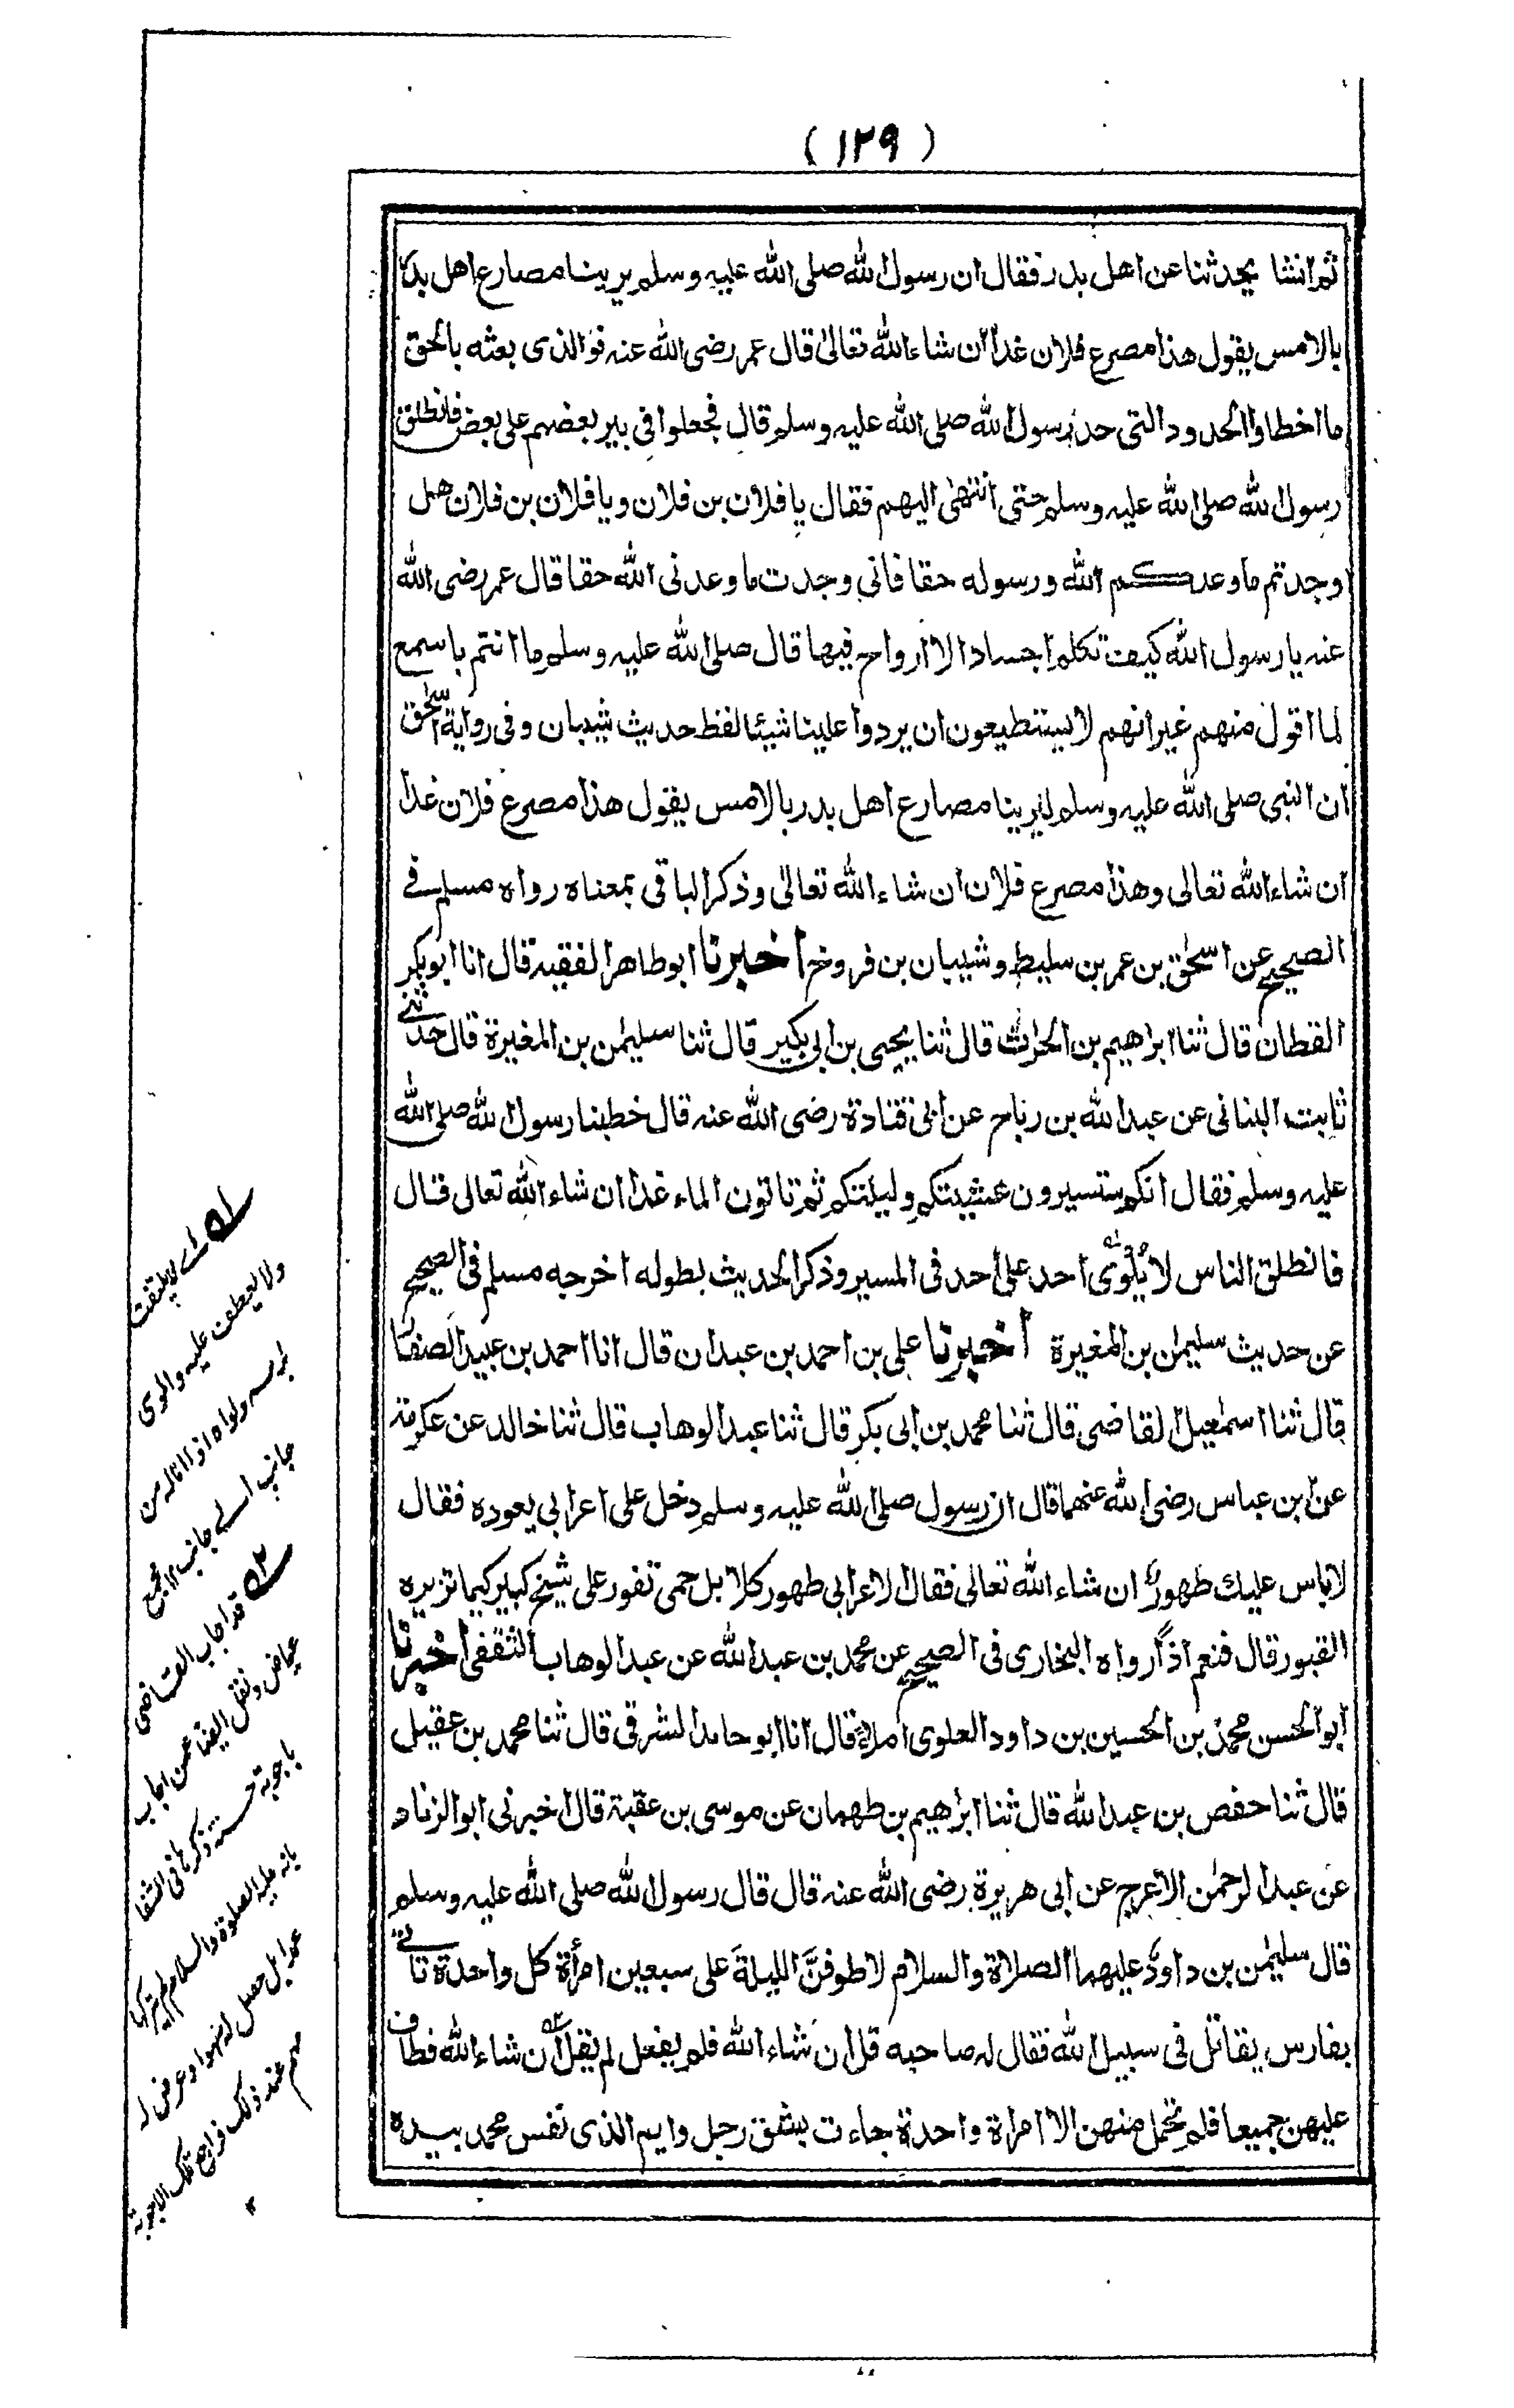 (١٢٩)
ثم انشا يحدثنا عن اهل بدر فقال ان رسول الله صلى الله عليه وسلم يرينا مصارع اهل بدر
بالامس يقول هذا مصرع فلان غدا ان شاء الله تعالى قال عمر رضى الله عنه فو الذى بعثه بالحق
ما اخطاوا الحدود التى حد رسول الله صلى الله عليه وسلم قال فجعلوا فى بير بعضهم على بعض فانطلق
رسول الله صلى الله عليه وسلم حتى انتهى اليهم فقال يا فلان بن فلان ويا فلان بن فلان هل
وجدتم ما وعدكم الله ورسوله حقا فانى وجدت ما وعدنى الله حقا قال عمر رضى الله
عنه يا رسول الله كيف تكلم اجسادا لا ارواح فيها قال صلى الله عليه وسلم ما انتم باسمع
لما اقول منهم غير انهم لا يستطيعون ان يردوا علينا شيئا لفظ حديث شيبان وفى رواية اسحٰق
ان النبى صلى الله عليه وسلم ليرينا مصارع اهل بدر بالامس يقول هذا مصرع فلان غدا
ان شاء الله تعالى وهذا مصرع فلان ان شاء الله تعالى وذكر الباقى بمعناه رواه مسلم فى
الصحيح عن اسحٰق بن عمر بن سليط وشيبان بن فروخ اخبرنا ابو طاهر الفقيه قال انا ابو بكر
القطان قال ثنا ابراهيم بن الحرث قال ثنا يحيى بن ابى بكير قال ثنا سليمٰن بن المغيرة قال حدثنى
ثابت البنانى عن عبد الله بن رباح عن ابى قتادة رضى الله عنه قال خطبنا رسول الله صلى الله
عليه وسلم فقال انكم ستسيرون عشيتكم وليلتكم ثم تاتون الماء غدا ان شاء الله تعالى قال
فانطلق الناس لا يلوى احد على احد فى المسير وذكر الحديث بطوله اخرجه مسلم فى الصحيح
عن حديث سليمٰن بن المغيرة اخبرنا على بن احمد بن عبدان قال انا احمد بن عبيد الصفار
قال ثنا اسمٰعيل القاضى قال ثنا محمد بن ابى بكر قال ثنا عبد الوهاب قال ثنا خالد عن عكرمة
عن ابن عباس رضى الله عنهما قال ان رسول صلى الله عليه وسلم دخل على اعرابى يعوده فقال
لا باس عليك طهورٌ ان شاء الله تعالى فقال الاعرابى طهور كلا بل حمى تفور على شيخ كبير كيما تزيره
القبور قال فنعم اذًا رواه البخارى فى الصحيح عن محمد بن عبد الله عن عبد الوهاب الثقفى اخبرنا
ابو الحسن محمد بن الحسين بن داود العلوى املاءً قال انا ابو حامد الشرقى قال ثنا محمد بن عقيل
قال ثنا حفص بن عبد الله قال ثنا ابرٰهيم بن طهمان عن موسى بن عقبة قال اخبرنى ابو الزناد
عن عبد الرحمٰن الاعرج عن ابى هريرة رضى الله عنه قال قال رسول الله صلى الله عليه وسلم
قال سليمٰن بن داودَ عليهما الصلاة والسلام لاطوفنَّ الليلةَ على سبعين امرأة كل واحدة تاتى
بفارس يقاتل فى سبيل الله فقال له صاحبه قل ان شاء الله فلم يفعل لم يقل ان شاء الله فطاف
عليهن جميعا فلم تحمل منهن الا امراة واحدة جاءت بشق رجل وايم الذى نفس محمد بيده
١ه اے لا يلتفت
ولا يعطف عليه والوى
براسه ولواه اذا اماله من
جانب الى جانب ١٢ مجمع
٢ه قد اجاب القاضى
عياض ونقل ايضا عمن اجاب
باجوبة حسنة ذكرها فى الشفا
بانه عليه الصلوة والسلام لم يترك
عمدا بل حصل له سهو او عرض له
عند ذلك فراجع تلك الاجوبة